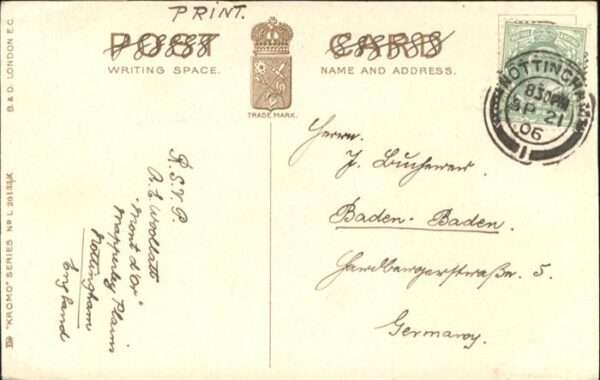 PRINT.
POST CARD
WRITING SPACE.
NAME AND ADDRESS.
TRADE MARK.
NOTTINGHAM
8.30PM
SP 21
06
1
Herrn.
Baden-Baden.
Hardbergerstraße. 5.
Germany.
R.S.V.P.
"Mont d'Or"
Mapperley Plains
Nottingham
England
B. & D. LONDON E.C.
"KROMO" SERIES